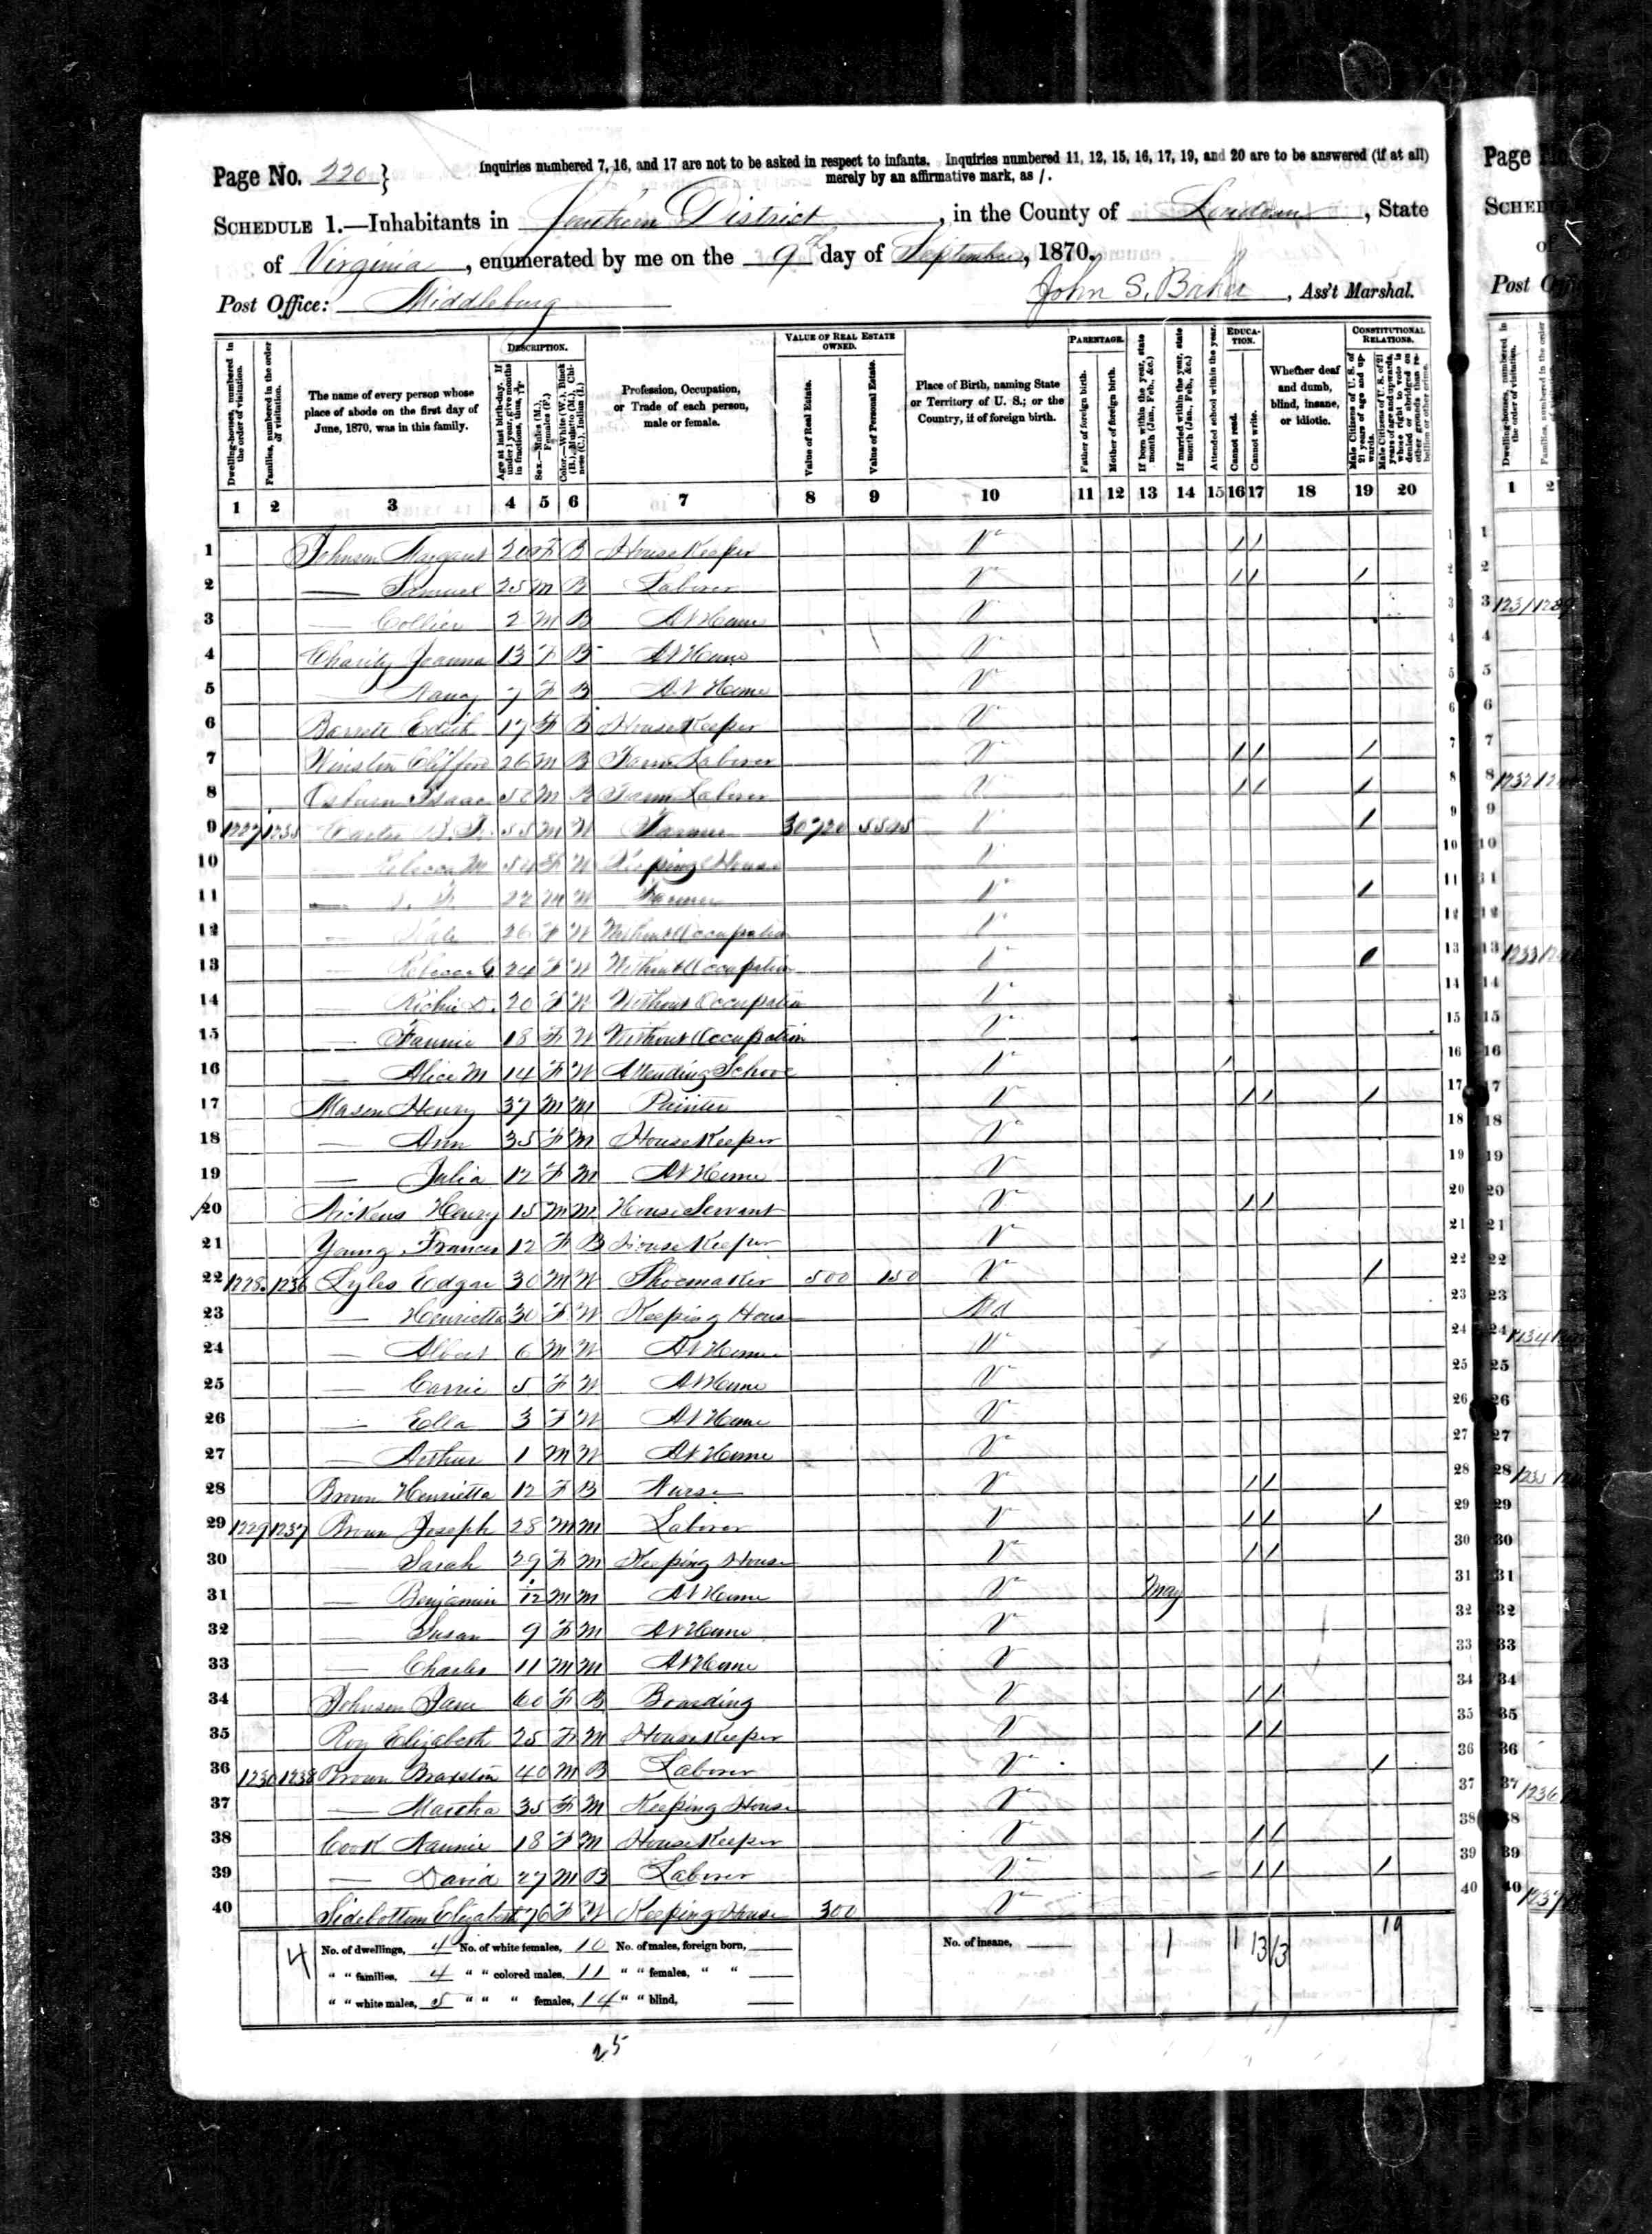 Page No. 220 } Inquiries numbered 7, 16, and 17 are not to be asked in respect to infants. Inquiries numbered 11, 12, 15, 16, 17, 19, and 20 are to be answered (if at all)
merely by an affirmative mark, as /.
SCHEDULE 1.—Inhabitants in Southern District, in the County of Loudoun, State
of Virginia, enumerated by me on the 9th day of September, 1870.
Post Office: Middleburg John S. Baker, Ass't Marshal.
Dwelling-houses, numbered in the order of visitation.
Families, numbered in the order of visitation.
The name of every person whose place of abode on the first day of June, 1870, was in this family.
DESCRIPTION.
Age at last birth-day. If under 1 year, give months in fractions, thus, 3/12
Sex.—Males (M.), Females (F.)
Color.—White (W.), Black (B.), Mulatto (M.), Chinese (C.), Indian (I.)
Profession, Occupation, or Trade of each person, male or female.
VALUE OF REAL ESTATE OWNED.
Value of Real Estate.
Value of Personal Estate.
Place of Birth, naming State or Territory of U. S.; or the Country, if of foreign birth.
PARENTAGE.
Father of foreign birth.
Mother of foreign birth.
If born within the year, state month (Jan., Feb., &c.)
If married within the year, state month (Jan., Feb., &c.)
Attended school within the year.
EDUCATION.
Cannot read.
Cannot write.
Whether deaf and dumb, blind, insane, or idiotic.
CONSTITUTIONAL RELATIONS.
Male Citizens of U. S. of 21 years of age and upwards.
Male Citizens of U. S. of 21 years of age and upwards, whose right to vote is denied or abridged on other grounds than rebellion or other crime.
1 2 3 4 5 6 7 8 9 10 11 12 13 14 15 16 17 18 19 20
1 Johnson Margaret 20 F B House Keeper V / / 1
2 — Samuel 25 M B Laborer V / / / 2
3 — Collier 2 M B At Home V 3
4 Charity Joanna 13 F B At Home V 4
5 — Nancy 7 F B At Home V 5
6 Barrett Edith 17 F B House Keeper V 6
7 Winston Clifford 26 M B Farm Laborer V / / / 7
8 Osburn Isaac 50 M B Farm Laborer V / / / 8
9 1227 1235 Carter 55 M W Farmer 30720 5525 V / 9
10 — Rebecca M 54 F W Keeping House V 10
11 — 22 M W Farmer V / 11
12 — Kate 26 F W Without Occupation V 12
13 — Rebecca 24 F W Without Occupation V 13
14 — Richie D. 20 F W Without Occupation V 14
15 — Fannie 18 F W Without Occupation V 15
16 — Alice M 14 F W Attending School V / 16
17 Mason Henry 37 M M Painter V / / / 17
18 — Ann 35 F M House Keeper V 18
19 — Julia 12 F M At Home V 19
20 Nickens Henry 15 M M House Servant V / / 20
21 Young Frances 12 F B House Keeper V 21
22 1228 1236 Lyles Edgar 30 M W Shoemaker 500 150 V / 22
23 — Henrietta 30 F W Keeping House Md 23
24 — Albert 6 M W At Home V 24
25 — Carrie 5 F W At Home V 25
26 — Ella 3 F W At Home V 26
27 — Arthur 1 M W At Home V 27
28 Brown Henrietta 12 F B Nurse V / / 28
29 1229 1237 Brown Joseph 28 M M Laborer V / / / 29
30 — Sarah 29 F M Keeping House V / / 30
31 — Benjamin 1/12 M M At Home V May 31
32 — Susan 9 F M At Home V 32
33 — Charles 11 M M At Home V 33
34 Johnson Jane 60 F B Boarding V / / 34
35 Roy Elizabeth 25 F M House Keeper V / / 35
36 1230 1238 Brown Braxston 40 M B Laborer V / 36
37 — Martha 35 F M Keeping House V 37
38 Cook Nannie 18 F M House Keeper V / / 38
39 — David 27 M B Laborer V / / / 39
40 Sidebottom Elizabeth 76 F W Keeping House 300 V 40
4 No. of dwellings, 4 No. of white females, 10 No. of males, foreign born, No. of insane, 1 1 13 13 10
" " families, 4 " " colored males, 11 " " females, " "
" " white males, 5 " " " females, 14 " " blind,
25